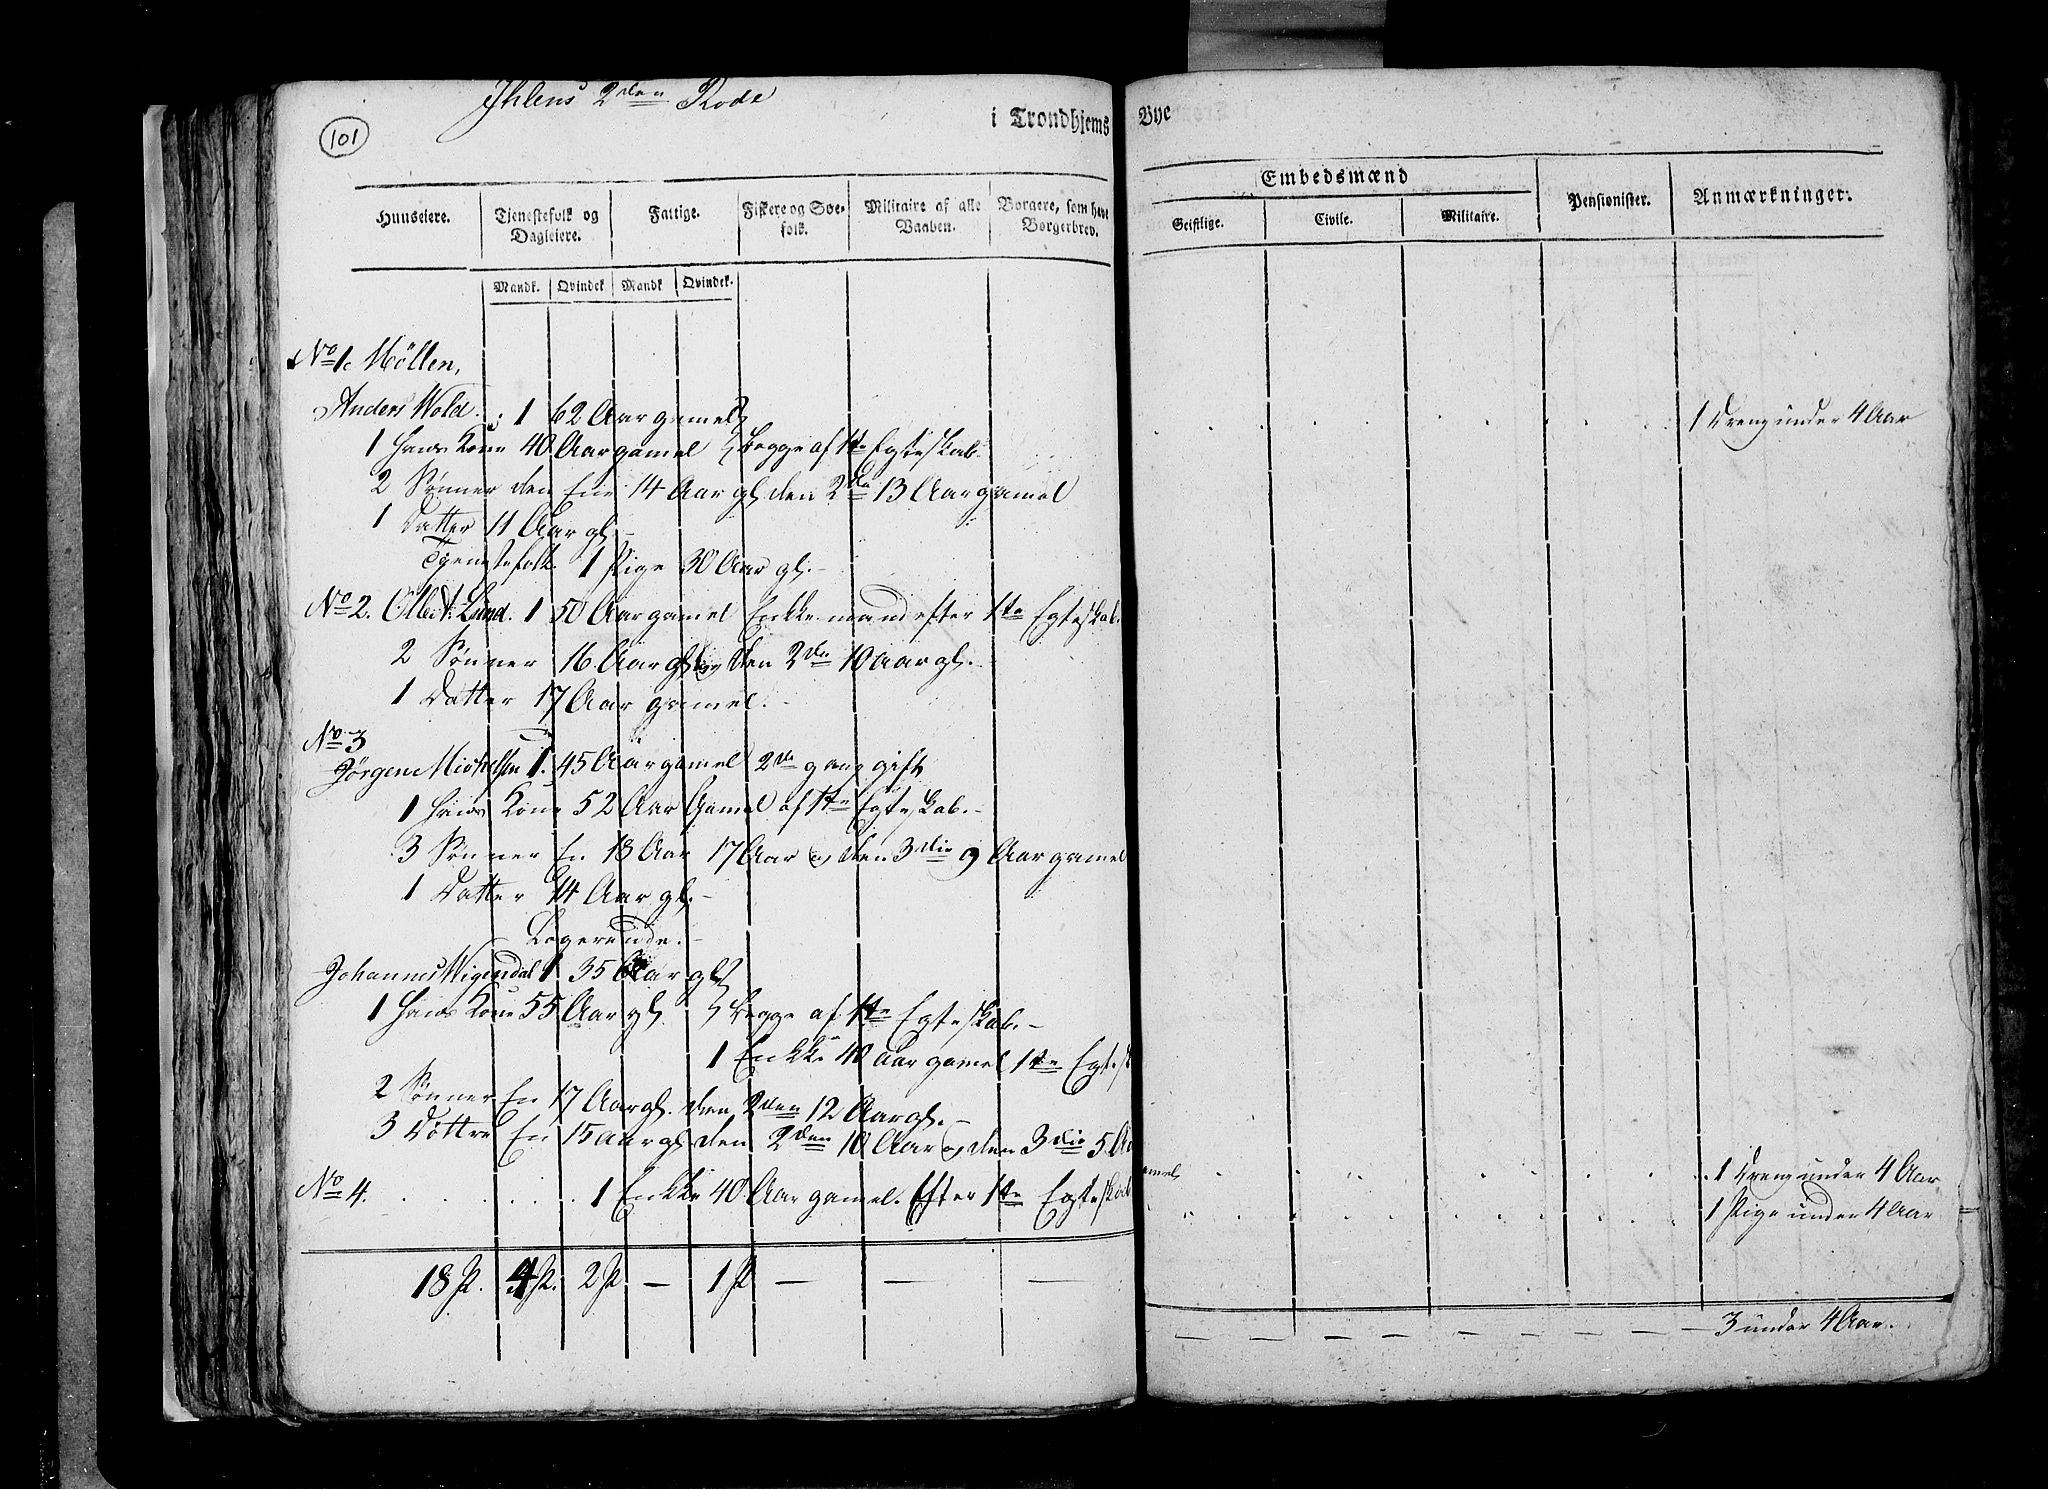 Ihlens 2den Rode
101
i Trondhjems Bye
Huuseiere. Tjenestefolk og Dagleiere. Fattige. Fiskere og Søefolk. Militaire af alle Vaaben. Borgere, som have Borgerbrev. Embedsmænd Geistlige. Civile. Militaire. Pensionister. Anmærkninger.
Mandk. Qvindek Mandk Qvindek.
No 1. Möllen,
Anders Wold. 1 62 Aar gamel 1 Dreng under 4 Aar
1 Hans Kone 40 Aar gamel Begge af 1te Egteskab.
2 Sønner den Ene 14 Aar gl. den 2de 13 Aar gamel
1 Datter 11 Aar gl. -
Tjenestefolk. 1 Pige 30 Aar gl. -
No 2. Lund. 1 50 Aar gamel Enkkemand efter 1te Egteskab.
2 Sønner 16 Aar gl. og den 2den 10 Aar gl. -
1 Datter 17 Aar gamel. -
No 3
Jörgen Mickelsen 1. 45 Aar gamel 2de gang gift
1 Hans Kone 52 Aar Gamel af 1te Egteskab. -
3 Sønner En 18 Aar 17 Aar og den 3die 9 Aar gamel
1 Datter 14 Aar gl. -
Logerende. -
Johannes Wigendal 1 35 Aar gl
1 Hans Kone 55 Aar gl. Begge af 1te Egteskab. -
1 Enkke 40 Aar gamel 1te Egtesk
2 Sønner En 17 Aar gl. den 2den 12 Aar gl. -
3 Döttre En 15 Aar gl. den 2den 10 Aar og den 3die 5 Aar gamel 1 Dreng under 4 Aar
No 4. 1 Enkke 40 Aar gamel. Efter 1te Egteskab 1 Pige under 4 Aar
18 P. 4 P. 2 P — 1 P — — —
3 under 4 Aar.